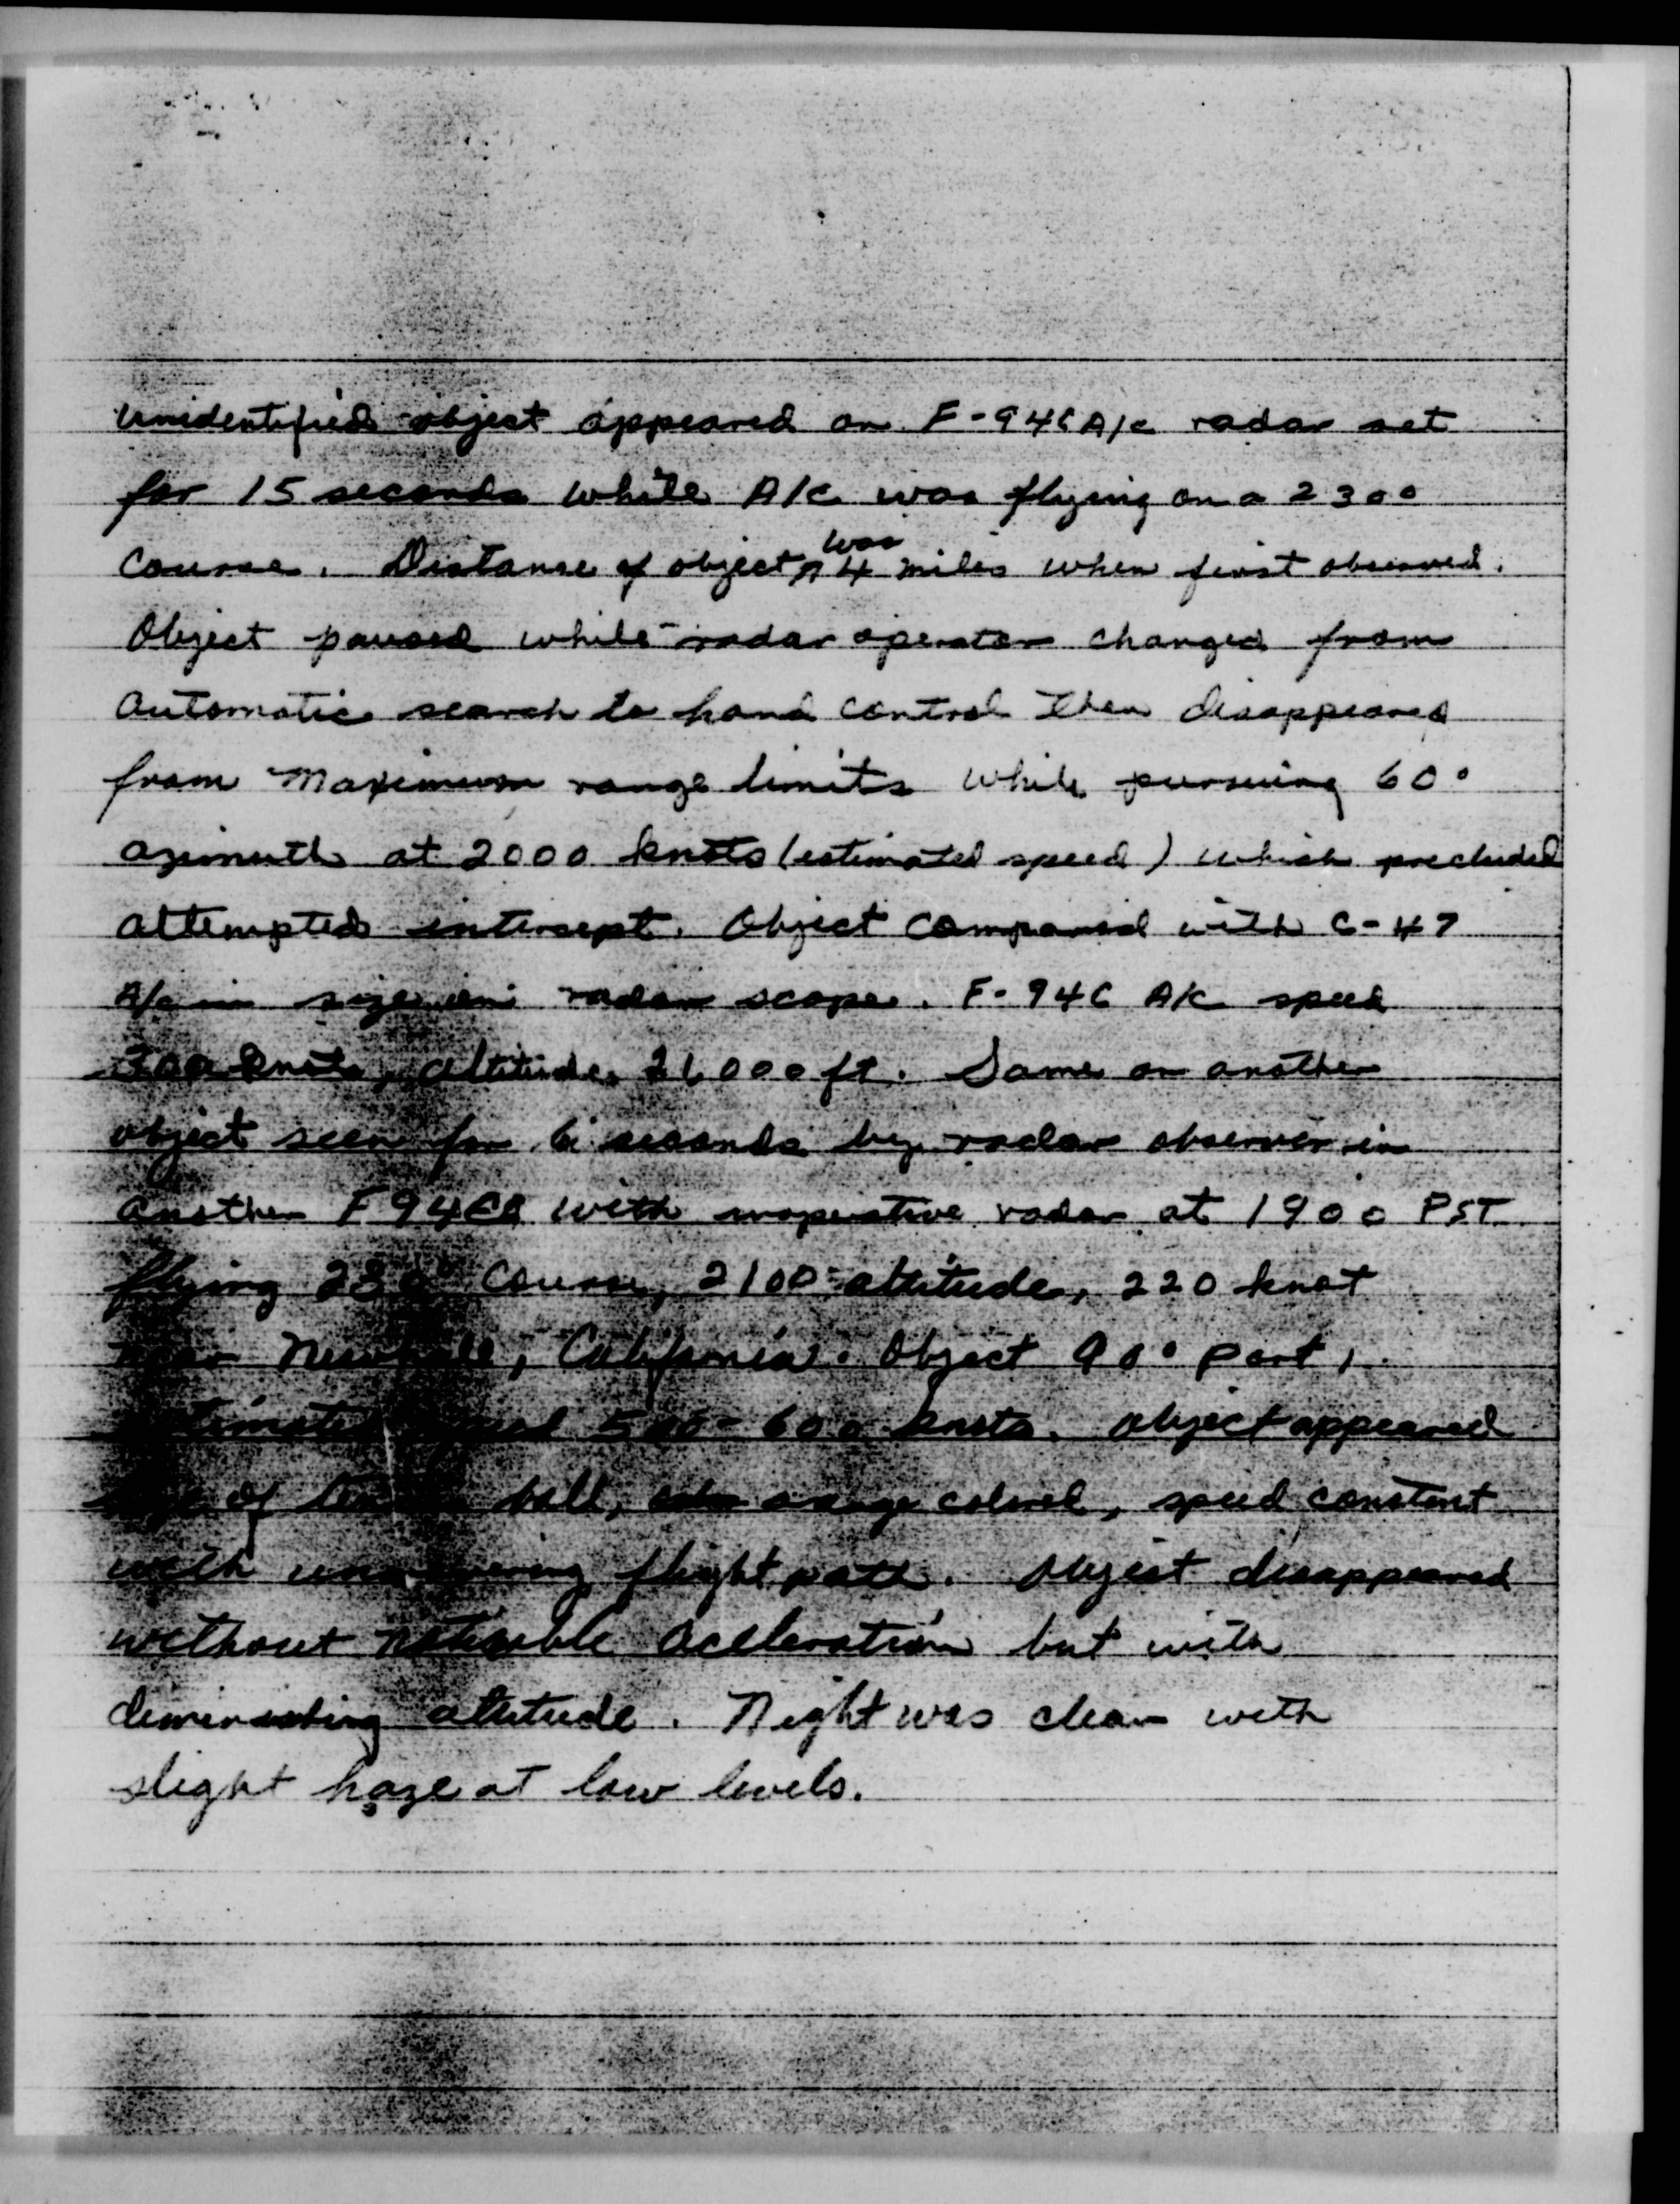 Unidentified object appeared on F-94C A/c radar set
for 15 seconds while A/c was flying on a 230°
course. Distance of object was 4 miles when first observed.
Object paused while radar operator changed from
automatic search to hand control then disappeared
from maximum range limits while pursuing 60°
azimuth at 2000 knots (estimated speed) which precluded
attempted intersept. Object compared with C-47
A/c in size on radar scope. F-94C A/c speed
300 knots, altitude, 21,000 ft. Same or another
object seen for 6 seconds by radar observer in
another F94C with inoperative radar at 1900 PST
flying 230° course, 2100 altitude, 220 knot
near Newhall, California. Object 90° port,
estimated speed 500-600 knots. Object appeared
size of tennis ball, orange colored, speed constent
with unwavering flight path. Object disappeared
without noticable acceleration but with
diminishing altitude. Night was clear with
slight haze at low levels.